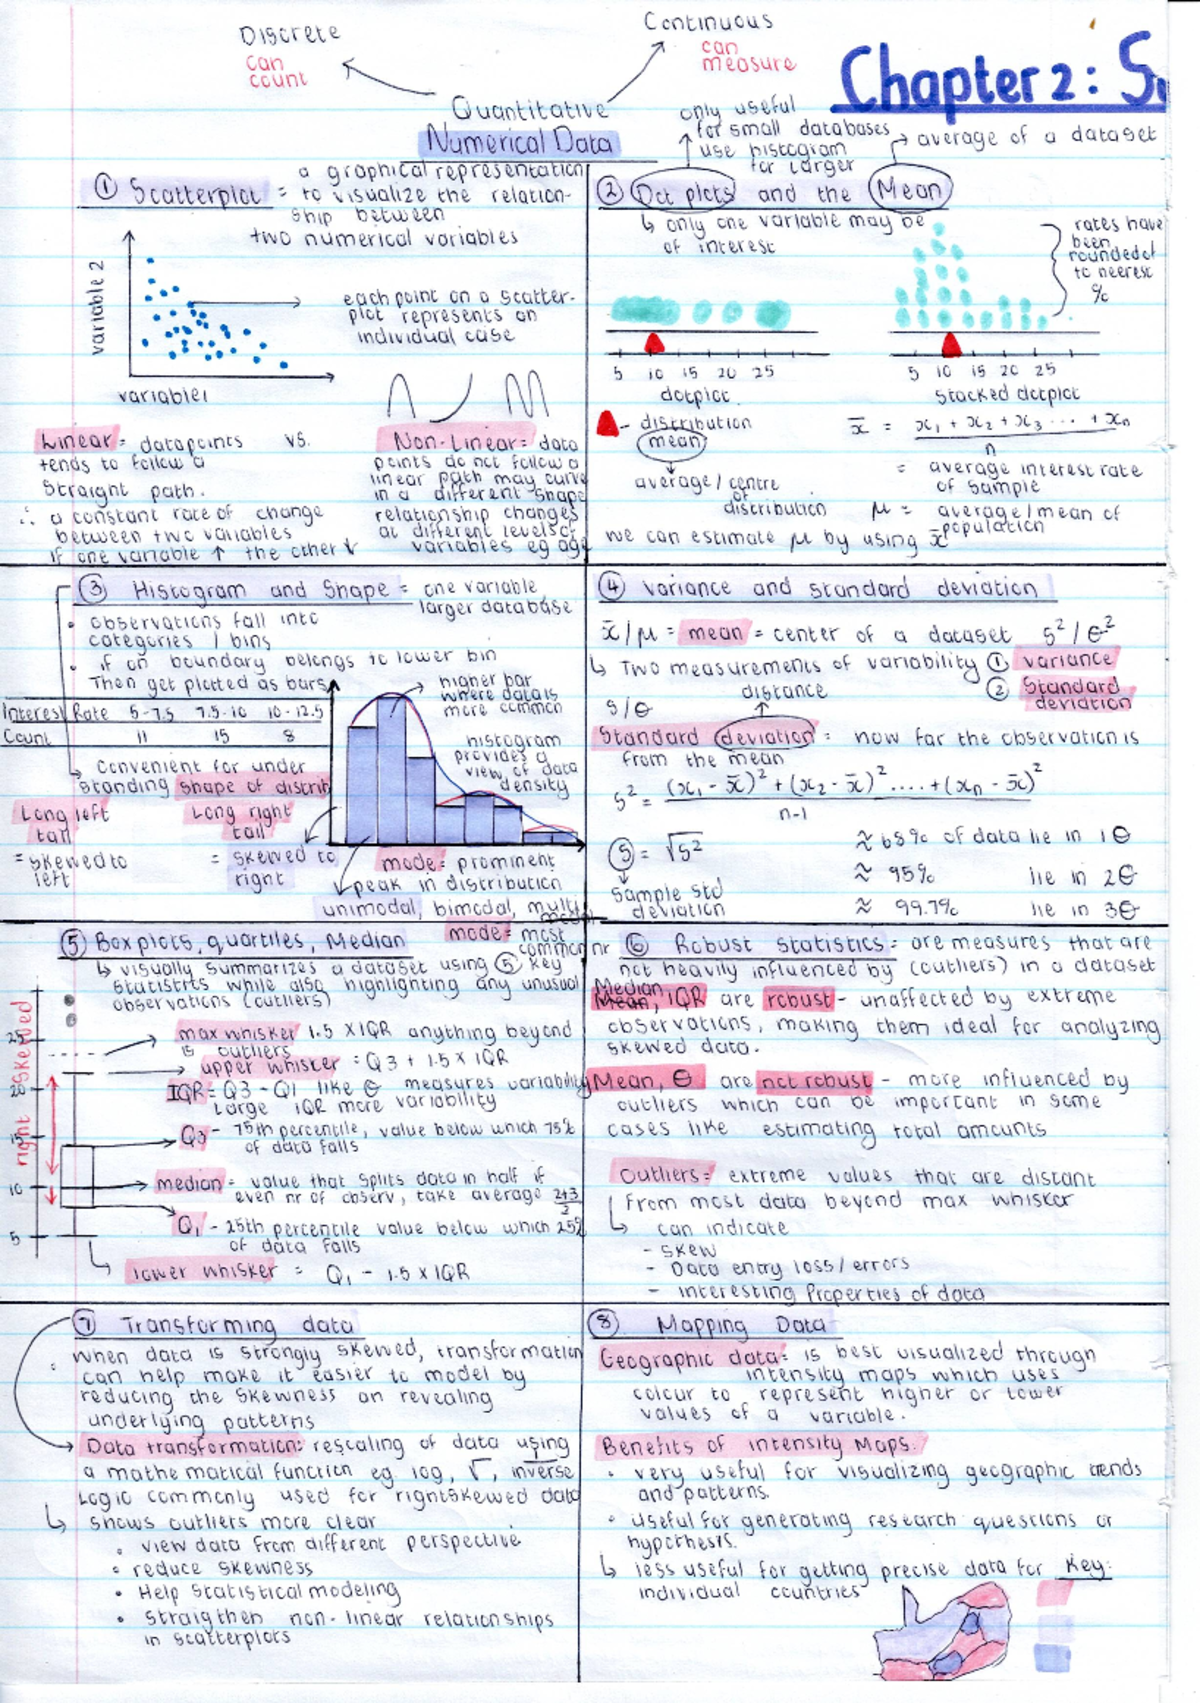 Discrete
can
count
Continuous
can
measure
Chapter 2: Su
Quantitative
Numerical Data
only useful
for small databases
use histogram
for larger
average of a dataset
① Scatterplot = a graphical representation
to visualize the relation-
ship between
two numerical variables
variable 2
variable1
each point on a scatter-
plot represents an
individual case
Linear = datapoints vs.
tends to follow a
straight path.
∴ a constant rate of change
between two variables
if one variable ↑ the other ↓
Non-Linear = data
points do not follow a
linear path may curve
in a different shape
relationship changes
at different levels of
variables eg age
② Dot plots and the Mean
↳ only one variable may be
of interest
rates have
been
roundedd
to neerest
%
5 10 15 20 25
dotplot.
5 10 15 20 25
Stacked dotplot
- distribution
mean
average / centre
of
distribution
x̄ = x₁ + x₂ + x₃ ... + xₙ
n
= average interest rate
of sample
μ = average/mean of
population
we can estimate μ by using x̄
③ Histogram and Shape = one variable
larger database
• observations fall into
categories / bins
• if on boundary belongs to lower bin
Then get plotted as bars
Interest Rate 5-7.5 7.5-10 10-12.5
Count 11 15 8
higher bar
where data is
more common
histogram
provides a
view of data
density
convenient for under
standing shape of distrib
Long left
tail
= skewed to
left
Long right
tail
= skewed to
right
mode = prominent
peak in distribution
unimodal, bimodal, multi
④ variance and standard deviation
x̄/μ = mean = center of a dataset s²/θ²
↳ Two measurements of variability ① variance
② Standard
deviation
distance
s/θ
Standard deviation = how far the observation is
from the mean
s² = (x₁ - x̄)² + (x₂ - x̄)² .... + (xₙ - x̄)²
n-1
s = √s²
sample std
deviation
≈ 68% of data lie in 1θ
≈ 95% lie in 2θ
≈ 99.7% lie in 3θ
⑤ Boxplots, quartiles, Median
mode = most
common nr
↳ visually summarizes a dataset using 5 key
statistits while also highlighting any unusual
observations (outliers)
right skewed
25
20
15
10
5
max whisker 1.5 X IQR anything beyond
is outliers
upper whisker = Q3 + 1.5 x IQR
IQR = Q3 - Q1 like θ measures variability
Large IQR more variability
Q3 - 75th percentile, value below which 75%
of data falls
median = value that splits data in half if
even nr of observ, take average 2+3
2
Q1 - 25th percentile value below which 25%
of data falls
lower whisker = Q1 - 1.5 x IQR
⑥ Robust statistics = are measures that are
not heavily influenced by (outliers) in a dataset
Median
Mean, IQR are robust - unaffected by extreme
observations, making them ideal for analyzing
skewed data.
Mean, θ are not robust - more influenced by
outliers which can be important in some
cases like estimating total amounts
Outliers = extreme values that are distant
from most data beyond max whisker
↳ can indicate
- skew
- Data entry loss / errors
- interesting Properties of data
⑦ Transforming data
• when data is strongly skewed, transformation
can help make it easier to model by
reducing the skewness on revealing
underlying patterns
Data transformation: rescaling of data using
a mathematical function eg. log, √, inverse
Logic commonly used for rightskewed data
↳ shows outliers more clear
• view data from different perspective
• reduce skewness
• Help statistical modeling
• straigthen non-linear relationships
in scatterplots
⑧ Mapping Data
Geographic data: is best visualized through
intensity maps which uses
colour to represent higher or lower
values of a variable.
Benefits of intensity Maps:
• very useful for visualizing geographic trends
and patterns.
• useful for generating research questions or
hypothesis.
↳ less useful for getting precise data for
individual countries
Key: